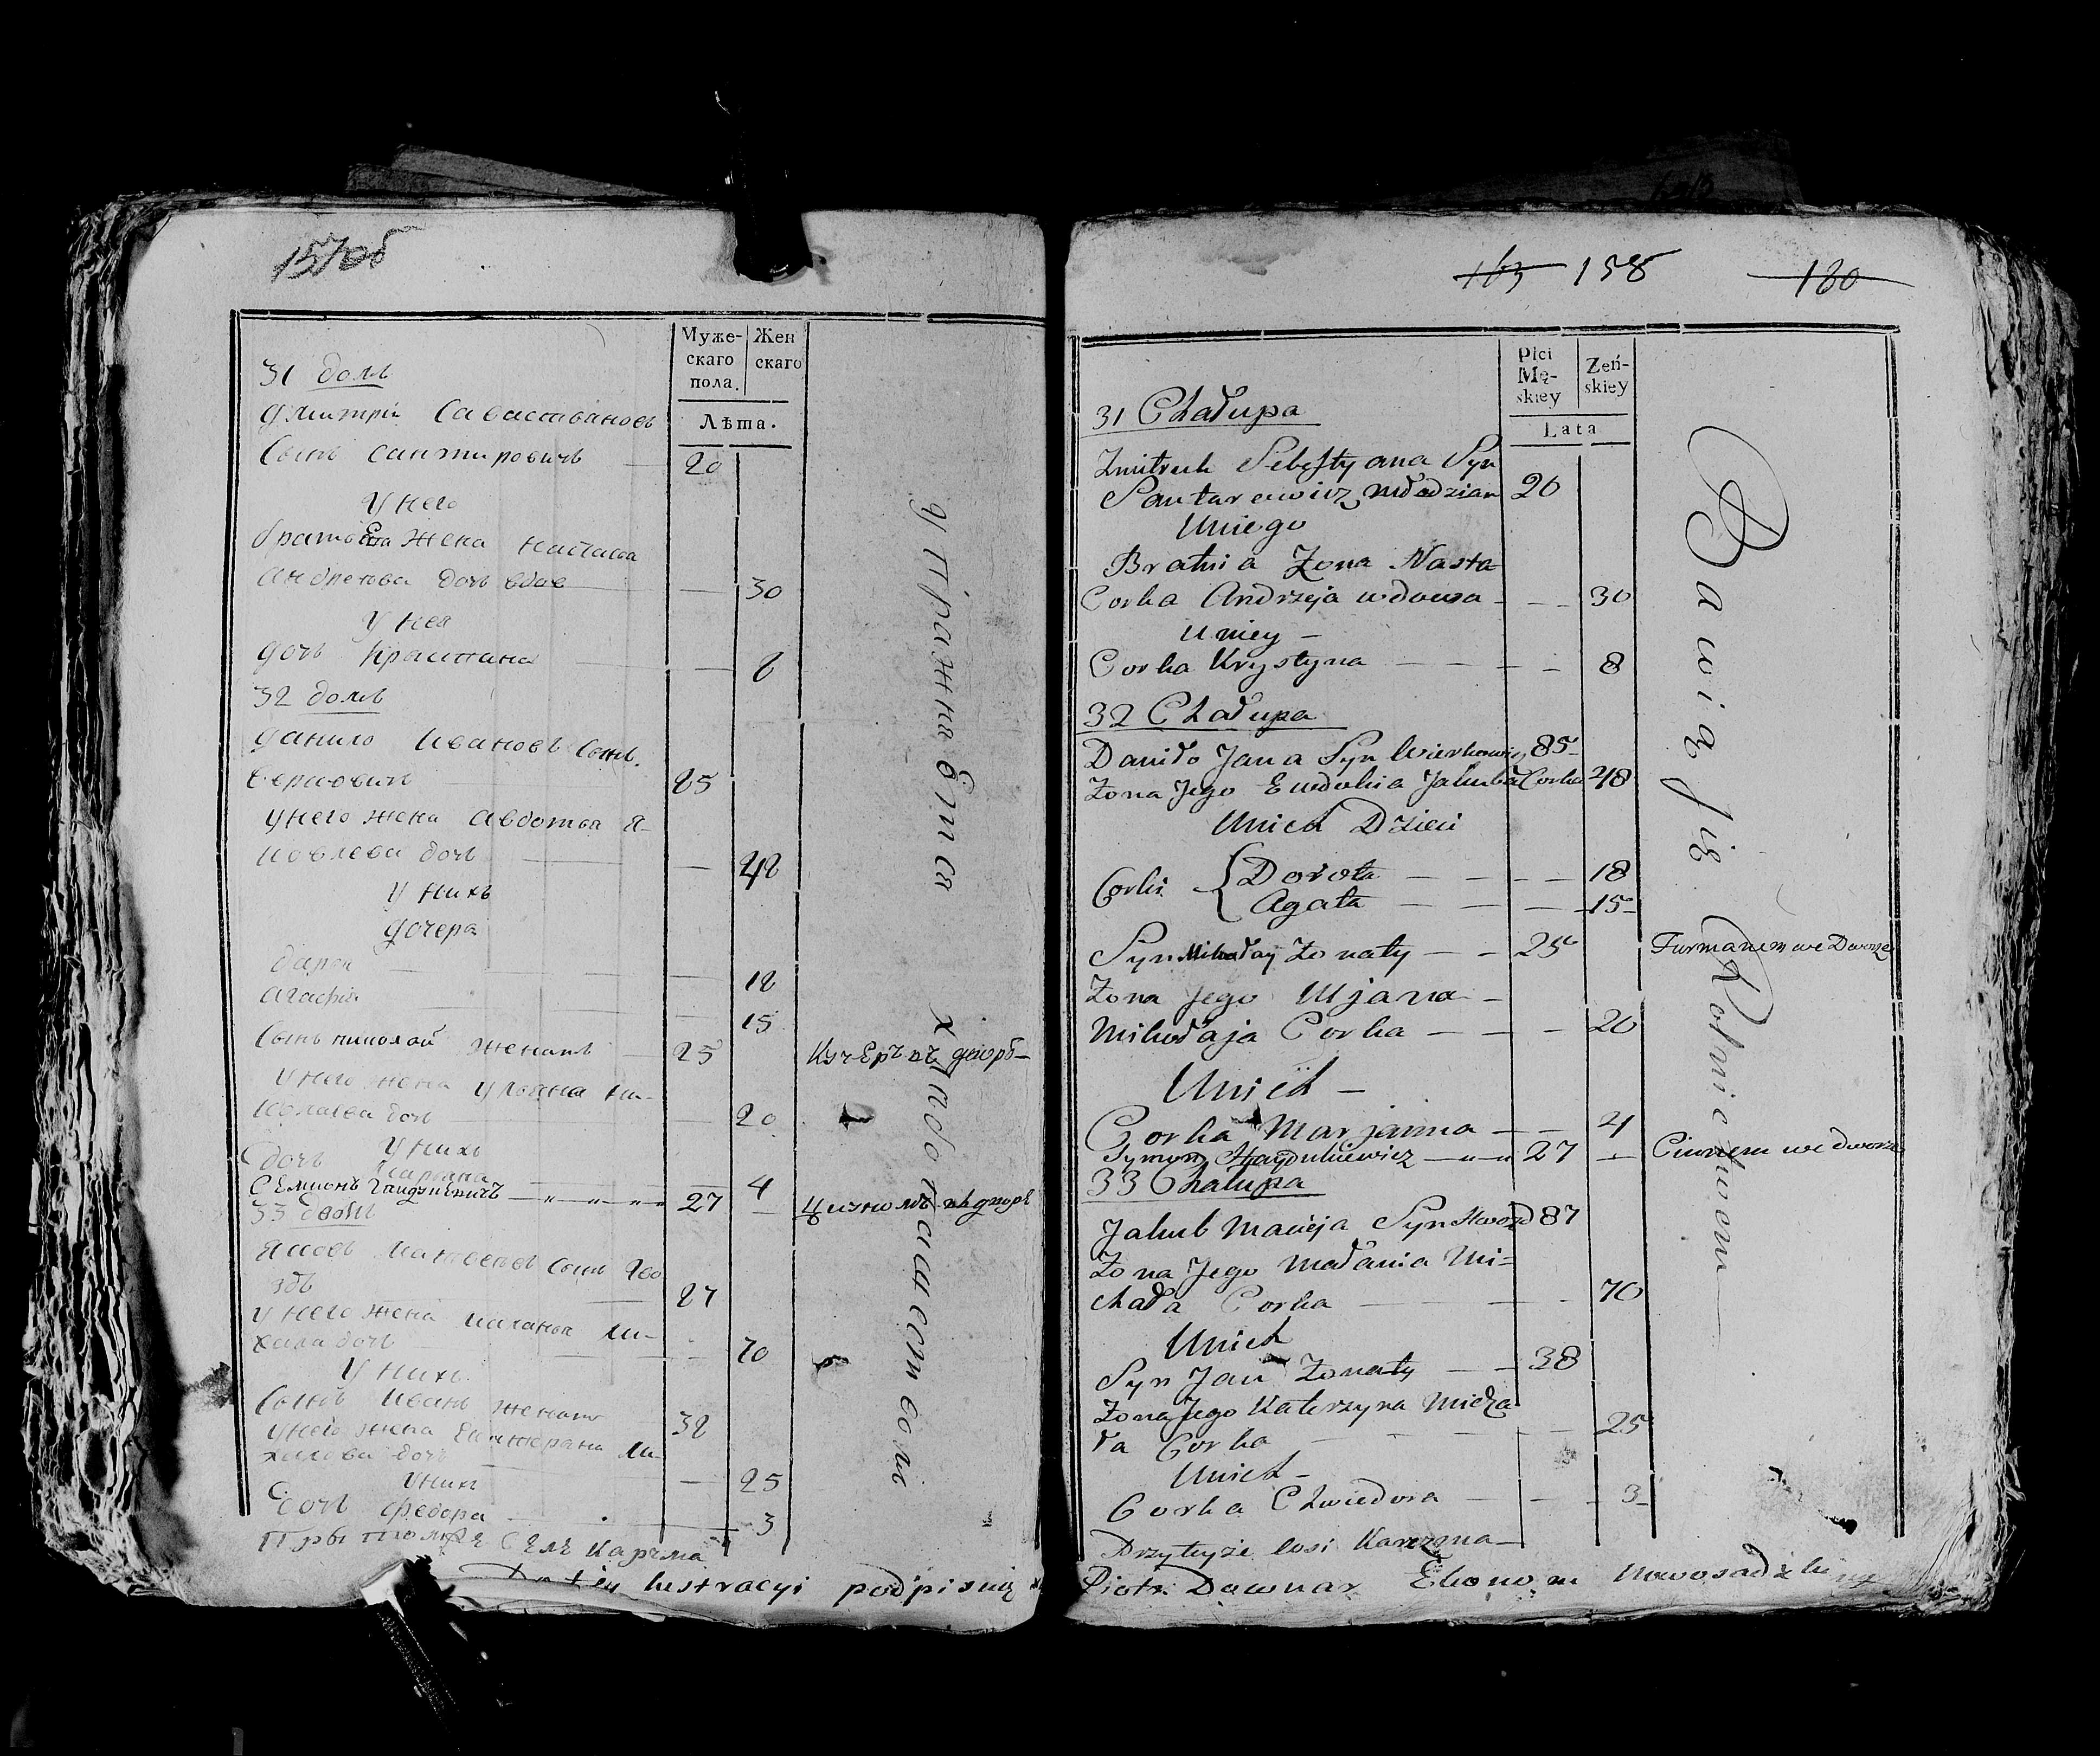 157об
Муже-
скаго
пола.
Жен
скаго
Лѣта.
31 домъ
Дмитрій Саваствановъ
Сынъ Сантировичъ — 20
У него
братова жена настася
Андреева дочь вдов — — 30
У нея
дочь Крыстина — — 8
32 домъ
Данило Ивановъ Сынъ
85
У него жена Авдотья Я-
ковлева дочь — — 48
У нихъ
Дочера
Дарья — — 18
Агафія — — 15
Сынъ николай женатъ — 25 Кучеръ въ дворѣ —
У него жена Ульяна Ни-
колаева дочь — 20
У нихъ
дочь Марьяна — 4
Семіонъ Гайдукевичъ — „ — „ — „ 27 —
33 домъ
Яковъ Матвеевъ Сынъ Гво
здъ — 87
У него жена Маланья Ми-
хала дочь — — 70
У нихъ
Сынъ Иванъ женатъ 38
У него жена Катерана Ми
халова дочь — 25
У нихъ
дочь Федора — 3
Пры томже Селе Карчма
упражняются хлебопашеством
lustracyi podpisuię
163 158 180
Płci
Mę-
skiey
Zeń-
skiey
Lata
31 Chałupa
Zmitruk Sebestyana Syn
Santarewicz młodzian 20
Uniego
Bratnia Zona Nasta
Corka Andrzeja wdowa — — 30
Uniey —
Corka Krystyna — — — — 8
32 Chałupa
Daniło Jana Syn Wierkowicz 85
Zona Jego Ewdokia Jakuba Corka 48
Unich Dzieci
Corki { Dorota — — — — 18
Agata — — — 15
Syn Mikołay Zonaty — — 25 Furmanem we Dworze
Zona Jego Uljana —
Mikołaja Corka — — — 20
Unich —
Corka Marjanna — — 4
Symon Haydukiewicz — „ — „ 27 — Ciwunem we dworze
33 Chałupa
Jakub Macieja Syn Hwozd 87
Zona Jego Małania Mi=
chała Corka — — — 70
Unich
Syn Jan Zonaty — — 38
Zona Jego Katerzyna Micha
ła Corka — — — 25
Unich —
Corka Chwiedora — — — 3
Przy teyze wsi Karczma —
Piotr Downar Ekonom
Bawią się Rolnictwem —